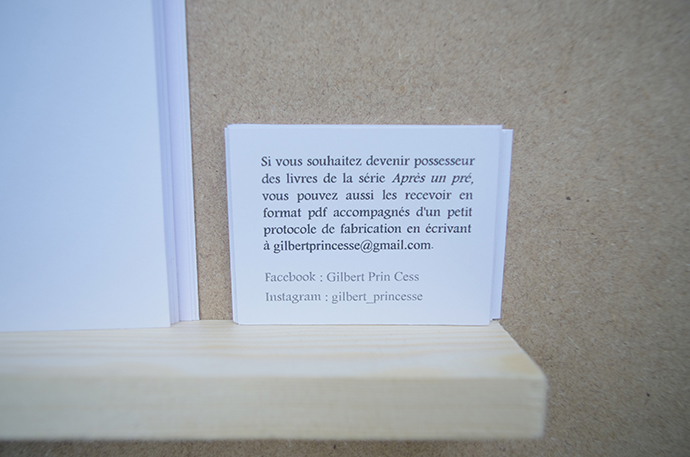 Si vous souhaitez devenir possesseur
des livres de la série Après un pré,
vous pouvez aussi les recevoir en
format pdf accompagnés d'un petit
protocole de fabrication en écrivant
à gilbertprincesse@gmail.com.
Facebook : Gilbert Prin Cess
Instagram : gilbert_princesse